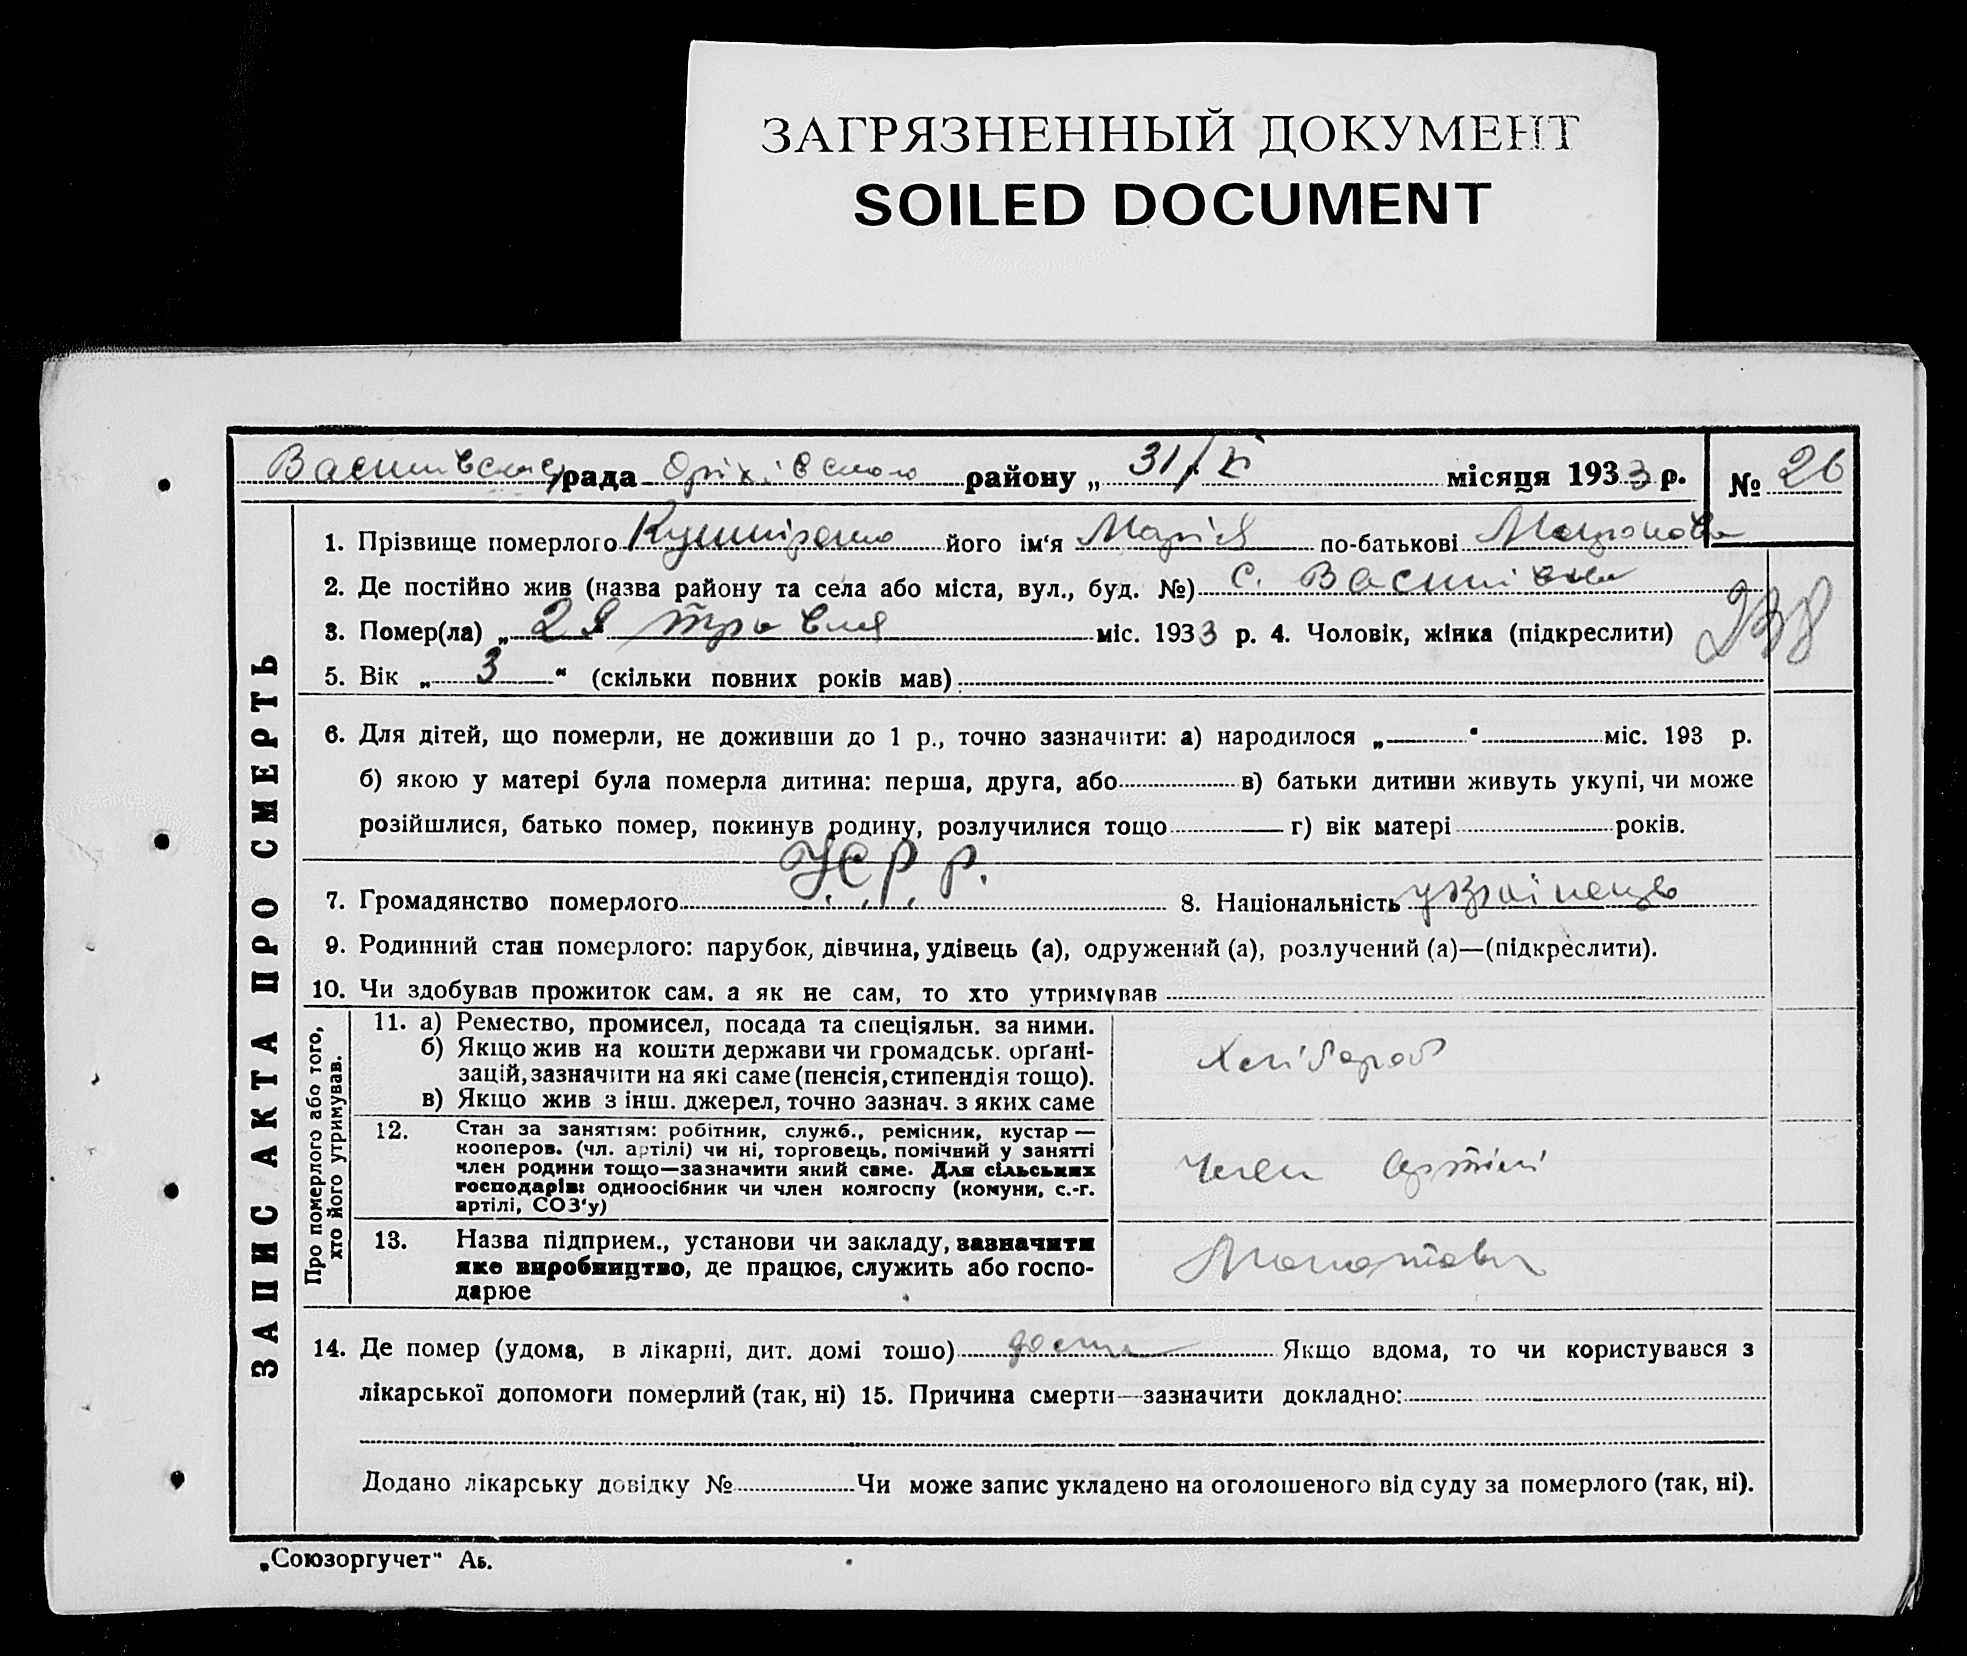 ЗАГРЯЗНЕННЫЙ ДОКУМЕНТ
SOILED DOCUMENT
рада Оріхівського району „ 31/V місяця 1933 р. № 26
1. Прізвище померлого його ім‘я Марія по-батькові
2. Де постійно жив (назва району та села або міста, вул., буд. №) с. Васинівка
3. Помер(ла) „ травня міс. 1933 р. 4. Чоловік, жінка (підкреслити) 238
5. Вік „ 3 “ (скільки повних років мав)
6. Для дітей, що померли, не доживши до 1 р., точно зазначити: а) народилося „ “ міс. 193 р.
б) якою у матері була померла дитина: перша, друга, або в) батьки дитини живуть укупі, чи може
розійшлися, батько помер, покинув родину, розлучилися тощо г) вік матері років.
7. Громадянство померлого 8. Національність українець
9. Родинний стан померлого: парубок, дівчина, удівець (а), одружений (а), розлучений (а)—(підкреслити).
10. Чи здобував прожиток сам. а як не сам, то хто утримував
ЗАПИС АКТА ПРО СМЕРТЬ
Про померлого або того,
хто його утримував.
11. а) Ремество, промисел, посада та спеціяльн. за ними.
б) Якщо жив на кошти держави чи громадськ. орґані-
зацій, зазначити на які саме (пенсія, стипендія тощо).
в) Якщо жив з інш. джерел, точно зазнач. з яких саме
Хлібороб
12. Стан за заняттям: робітник, служб., ремісник, кустар —
кооперов. (чл. артілі) чи ні, торговець, помічний у занятті
член родини тощо—зазначити який саме. Для сільських
господарів: одноосібник чи член колгоспу (комуни, с.-г.
артілі, СОЗ‘у)
член артілі
13. Назва підприєм., установи чи закладу, зазначити
яке виробництво, де працює, служить або госпо-
дарює
14. Де помер (удома, в лікарні, дит. домі тошо) дома Якщо вдома, то чи користувався з
лікарської допомоги померлий (так, ні) 15. Причина смерти—зазначити докладно:
Додано лікарську довідку № Чи може запис укладено на оголошеного від суду за померлого (так, ні).
„Союзоргучет“ Аь.